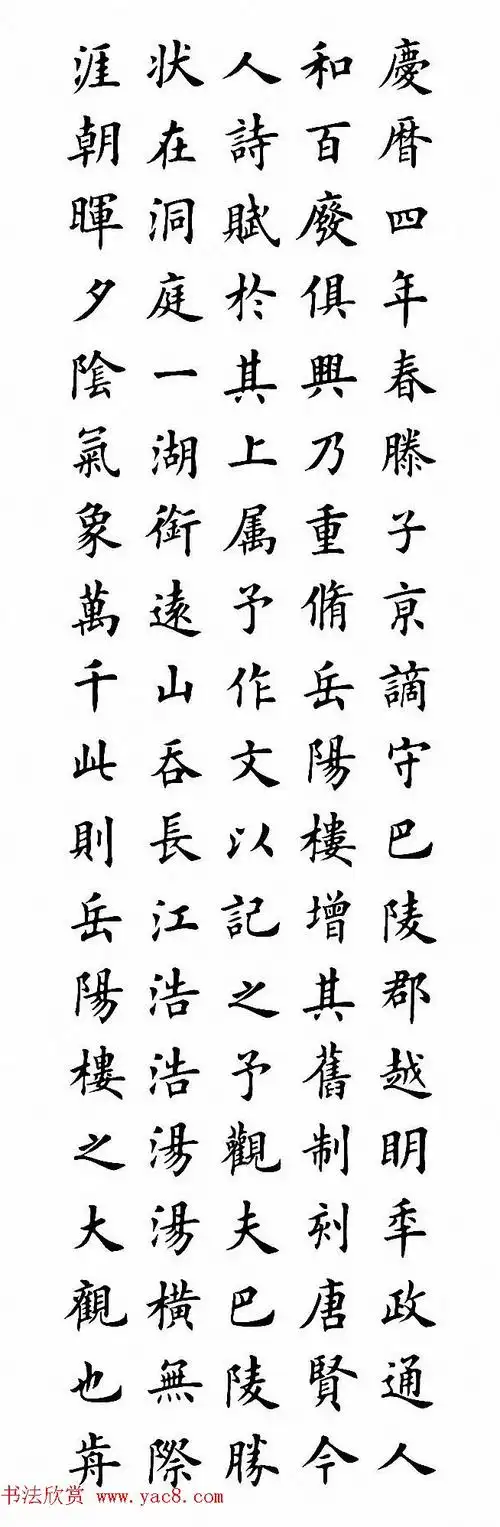 慶曆四年春滕子京謫守巴陵郡越明年政通人
和百廢俱興乃重脩岳陽樓增其舊制刻唐賢今
人詩賦於其上属予作文以記之予觀夫巴陵勝
状在洞庭一湖銜遠山吞長江浩浩湯湯橫無際
涯朝暉夕陰氣象萬千此則岳陽樓之大觀也歬
书法欣赏 www.yac8.com